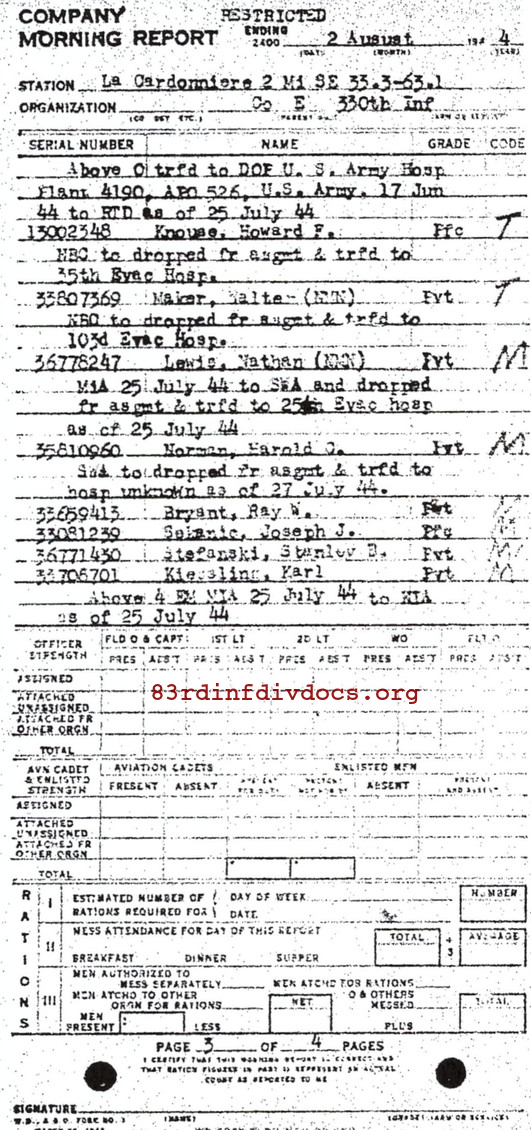 COMPANY RESTRICTED
MORNING REPORT ENDING 2400 2 August 194 4
(DAY) (MONTH) (YEAR)
STATION La Cardonniere 2 Mi SE 33.3-63.1
ORGANIZATION Co E 330th Inf
SERIAL NUMBER NAME GRADE CODE
Above O trfd to DOP U. S. Army Hosp
Plant 4190, APO 526, U.S. Army, 17 Jun
44 to RTD as of 25 July 44
13002348 Knouse, Howard F. Pfc T
NBC to dropped fr asgmt & trfd to
35th Evac Hosp.
33807369 Walter (NMN) Pvt T
NBC to dropped fr asgmt & trfd to
103d Evac Hosp.
36778247 Lewis, Nathan (NMN) Pvt M
MIA 25 July 44 to SWA and dropped
fr asgmt & trfd to 25th Evac hosp
as of 25 July 44
35810960 Norman, Harold G. Pvt M
SWA to dropped fr asgmt & trfd to
hosp unknown as of 27 July 44.
33659413 Bryant, Ray W. Pvt
33081239 Sekanic, Joseph J. Pfc
36771430 Stefanski, Stanley B. Pvt M
33706701 Kiessling, Karl Pvt M
Above 4 EM MIA 25 July 44 to KIA
as of 25 July 44
OFFICER STRENGTH FLD O & CAPT 1ST LT 2D LT WO FLT O
PRES ABS'T PRES ABS'T PRES ABS'T PRES ABS'T PRES ABS'T
ASSIGNED
ATTACHED UNASSIGNED
83rdinfdivdocs.org
ATTACHED FR OTHER ORGN
TOTAL
AVN CADET & ENLISTED STRENGTH AVIATION CADETS ENLISTED MEN
PRESENT ABSENT PRESENT FOR DUTY PRESENT NOT FOR DY ABSENT PRESENT AND ABSENT
ASSIGNED
ATTACHED UNASSIGNED
ATTACHED FR OTHER ORGN
TOTAL
RATIONS
I ESTIMATED NUMBER OF RATIONS REQUIRED FOR DAY OF WEEK DATE NUMBER
II MESS ATTENDANCE FOR DAY OF THIS REPORT TOTAL ÷ 3 AVERAGE
BREAKFAST DINNER SUPPER
III MEN AUTHORIZED TO MESS SEPARATELY MEN ATCHD FOR RATIONS
MEN ATCHD TO OTHER ORGN FOR RATIONS NET O & OTHERS MESSED TOTAL
MEN PRESENT LESS PLUS
PAGE 3 OF 4 PAGES
I CERTIFY THAT THIS MORNING REPORT IS CORRECT AND
THAT RATION FIGURES IN PART II REPRESENT AN ACTUAL
COUNT AS REPORTED TO ME
SIGNATURE
W.D., A.G.O. FORM NO. 1 (NAME) (GRADE) (ARM OR SERVICE)